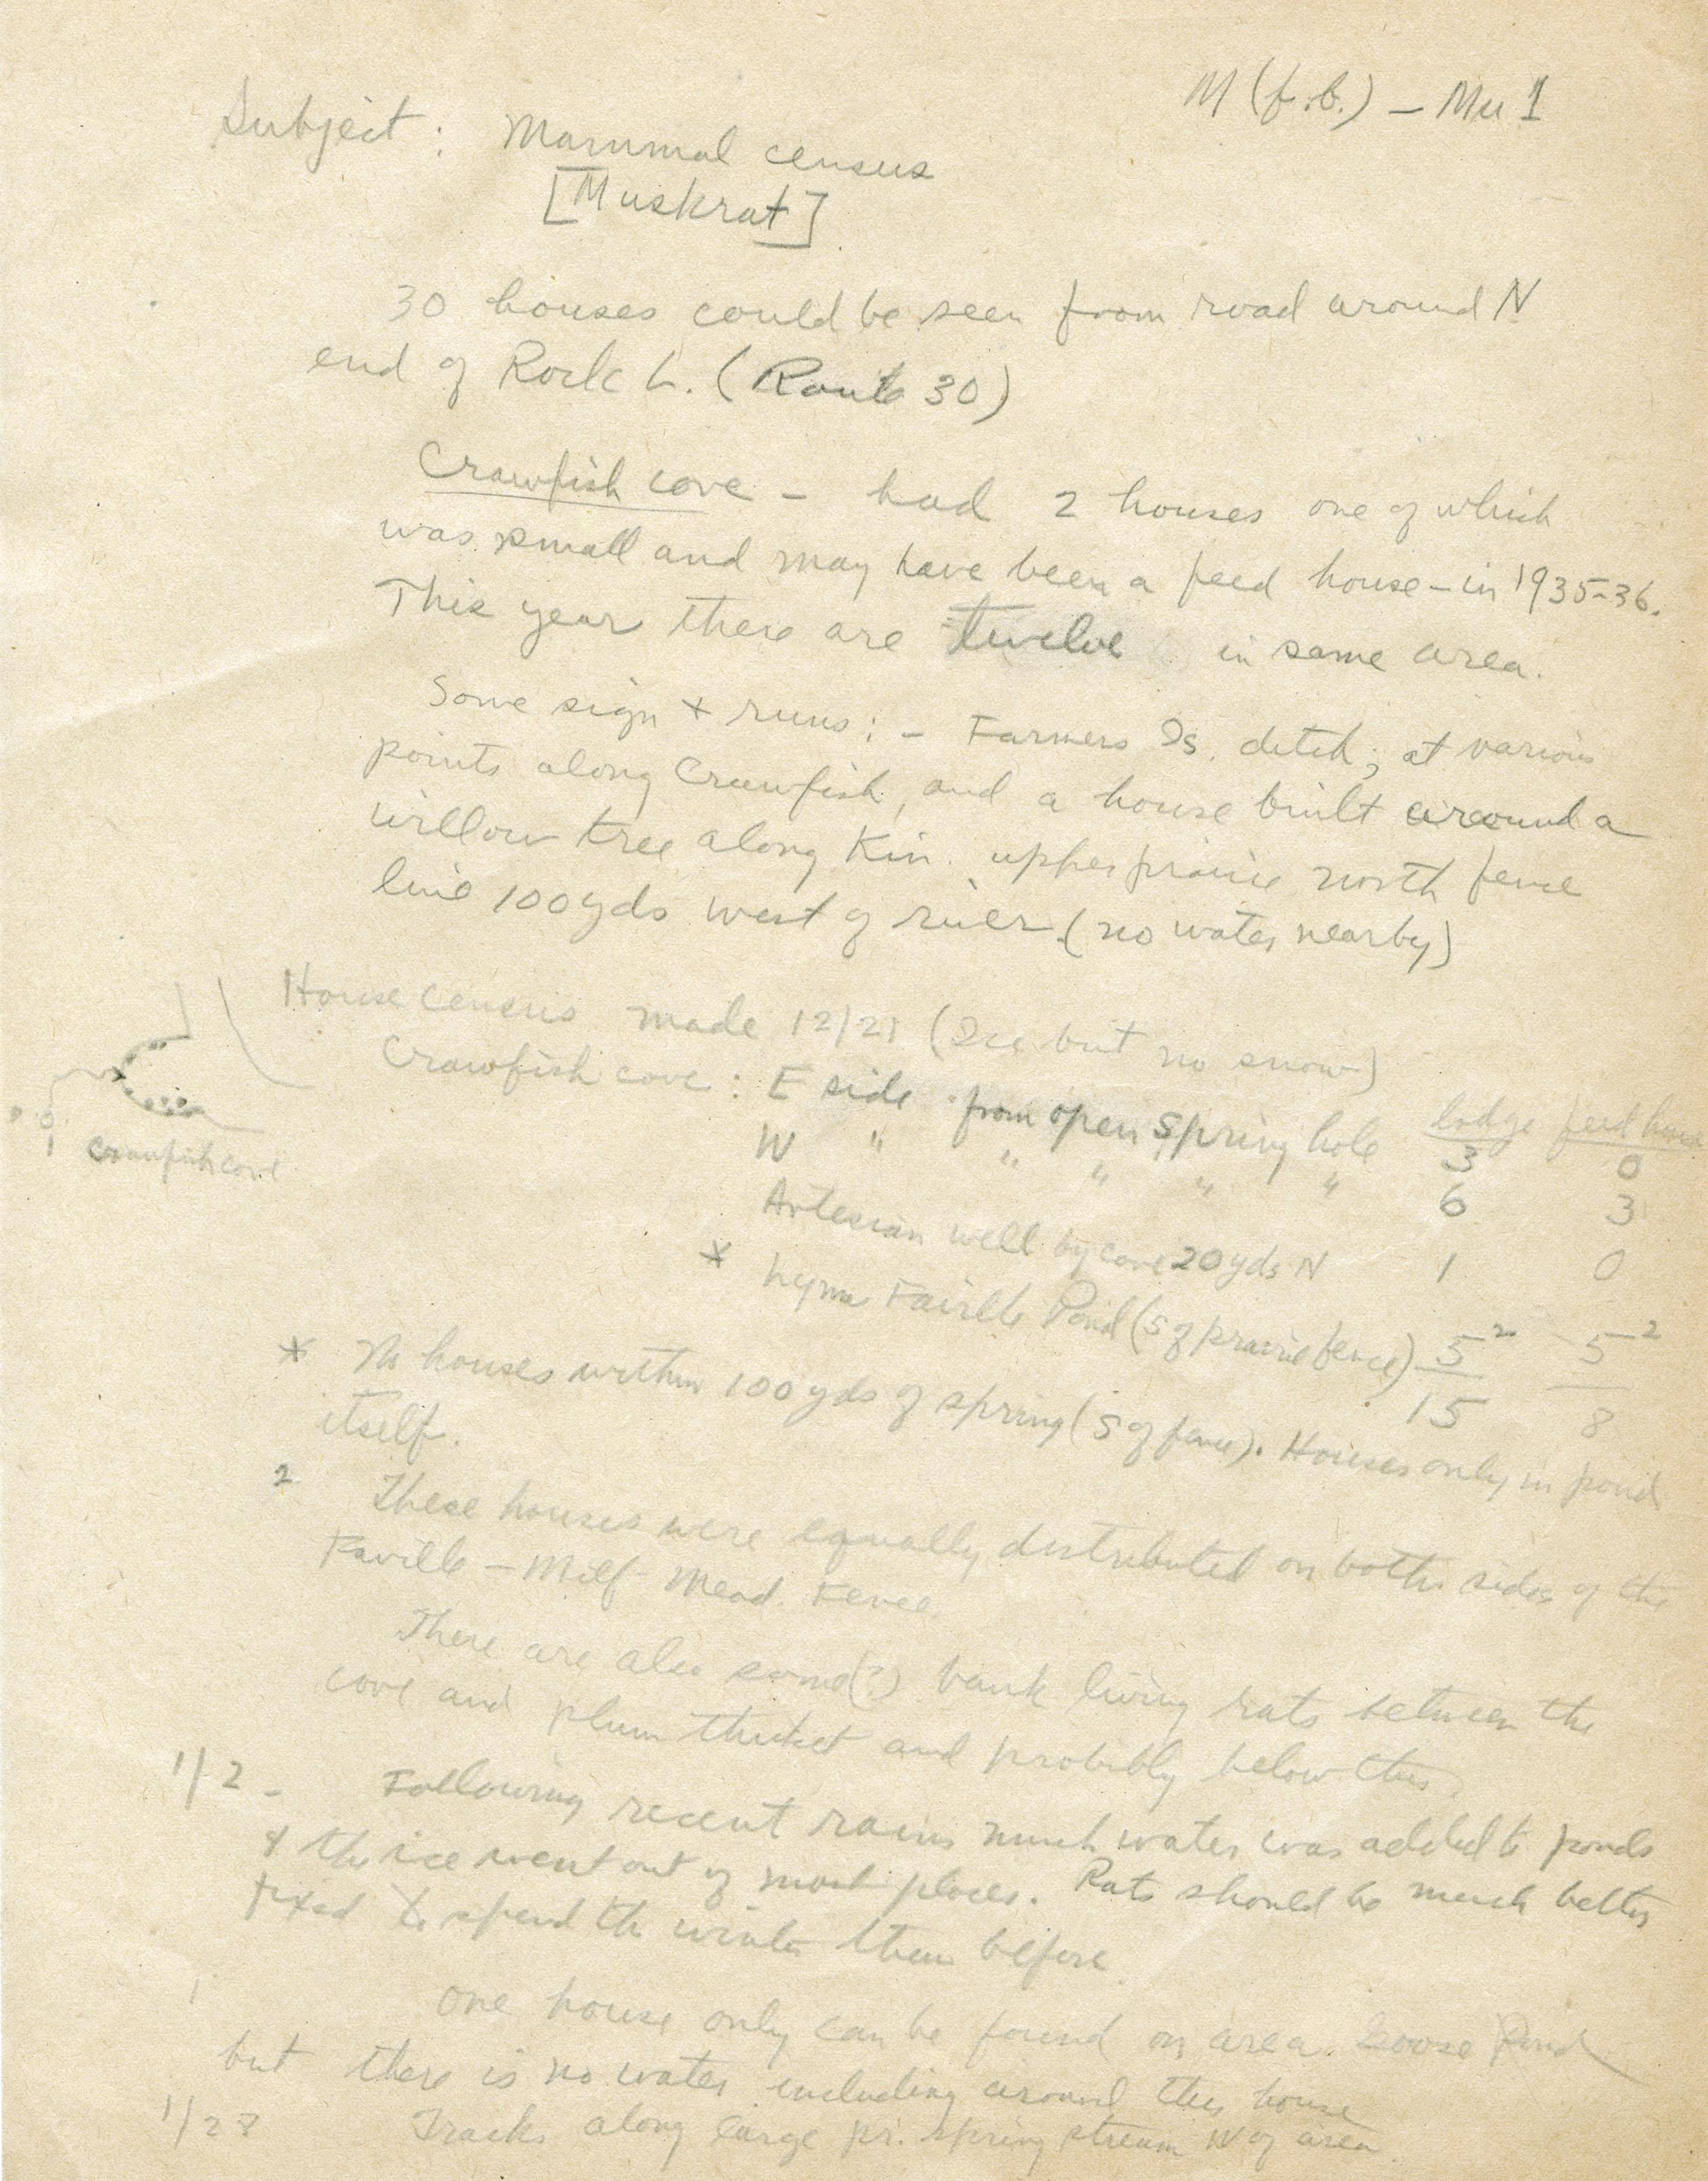 M (f.b.) – Mu 1
Subject: Mammal census
[Muskrat]
30 houses could be seen from road around N
end of Rock L. (Route 30)
Crawfish cove – had 2 houses one of which
was small and may have been a feed house – in 1935-36.
This year there are twelve in same area.
Some sign + runs: – Farmers Is. ditch; at various
points along Crawfish, and a house built around a
willow tree along Kin. upper prairie north fence
line 100 yds west of river (no water nearby)
House census made 12/21 (Ice but no snow)
lodge feed house
Crawfish cove: E side from open spring hole 3 0
W " " " " " 6 3
Artesian well by cove 20 yds N 1 0
* Faville Pond (S of prairie fence) 5² 5²
15 8
Crawfish cove
* No houses within 100 yds of spring (S of fence). Houses only in pond
itself.
2 These houses were equally distributed on both sides of the
Faville – Milf. Mead. Fence.
There are also some(?) bank living rats between the
cove and plum thicket and probably below this.
1/2 – Following recent rains much water was added to ponds
& the ice went out of most places. Rats should be much better
fixed to spend the winter than before.
One house only can be found on area. Goose Pond
but there is no water including around this house
1/28 Tracks along large pr. spring stream W of area.